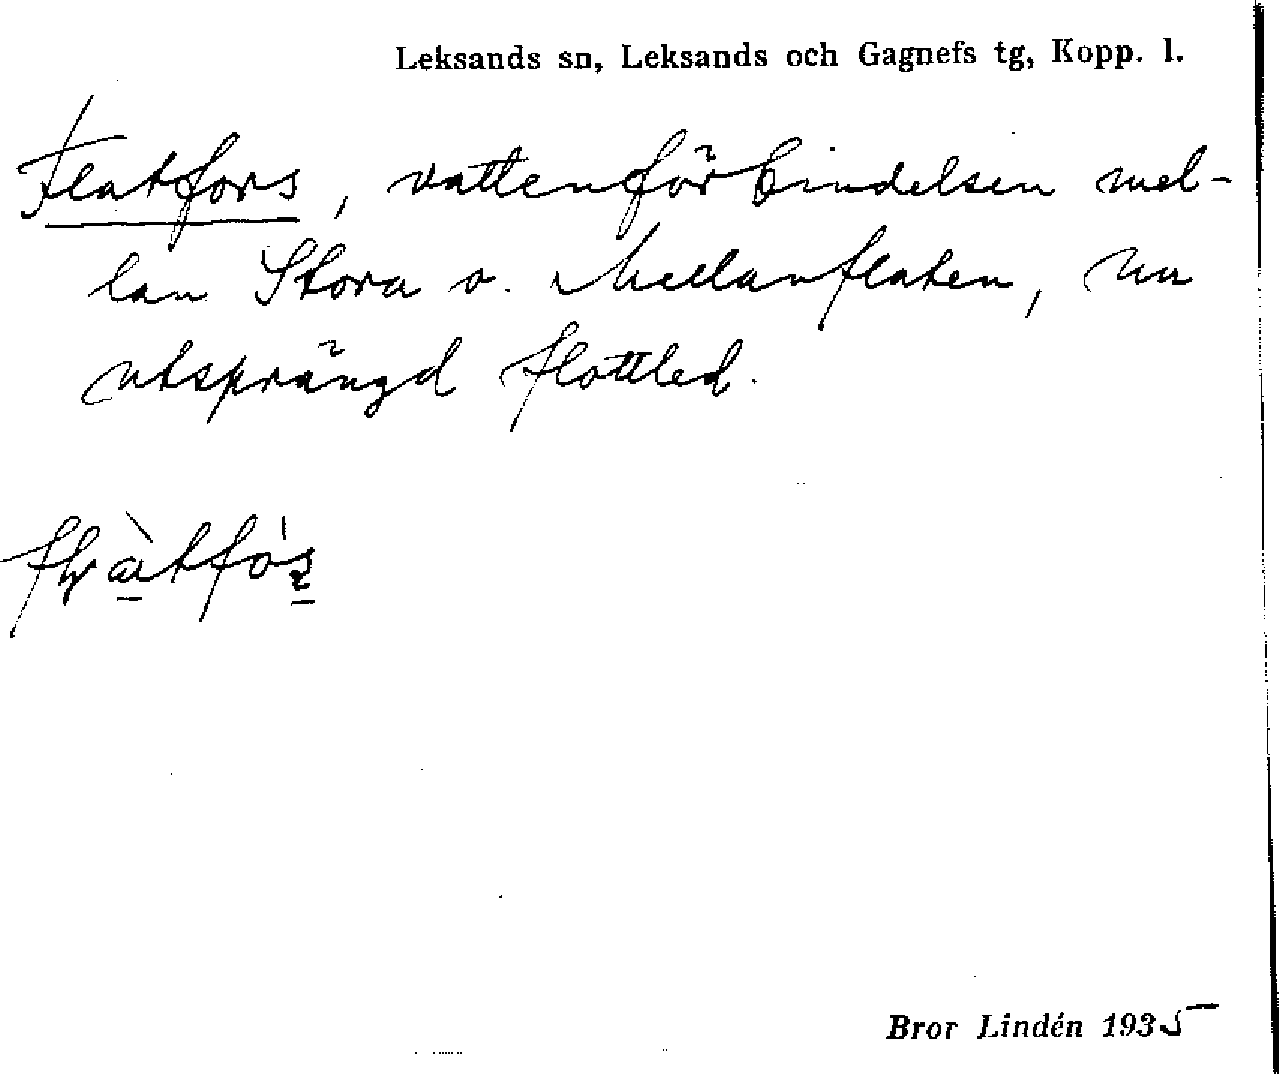 Leksands sn, Leksands och Gagnefs tg, Kopp. l.
Flatfors, vattenförbindelsen mel-
lan Stora o. Mellanflaten, nu
utsprängd flottled.
Bror Lindén 1935